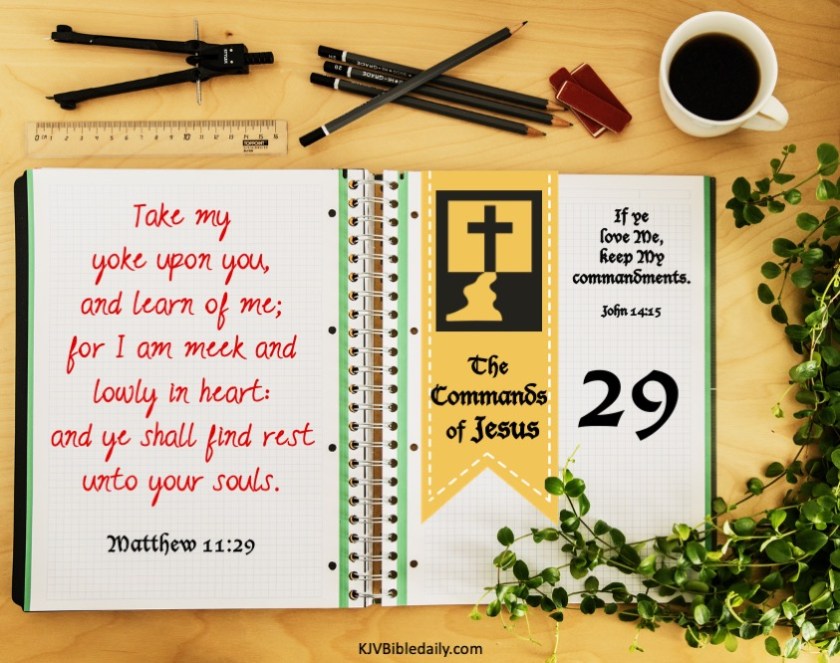 TOPPOINT
Take my
yoke upon you,
and learn of me;
for I am meek and
lowly in heart:
and ye shall find rest
unto your souls.
Matthew 11:29
The
Commands
of Jesus
If ye
love Me,
keep My
commandments.
John 14:15
29
KJVBibledaily.com